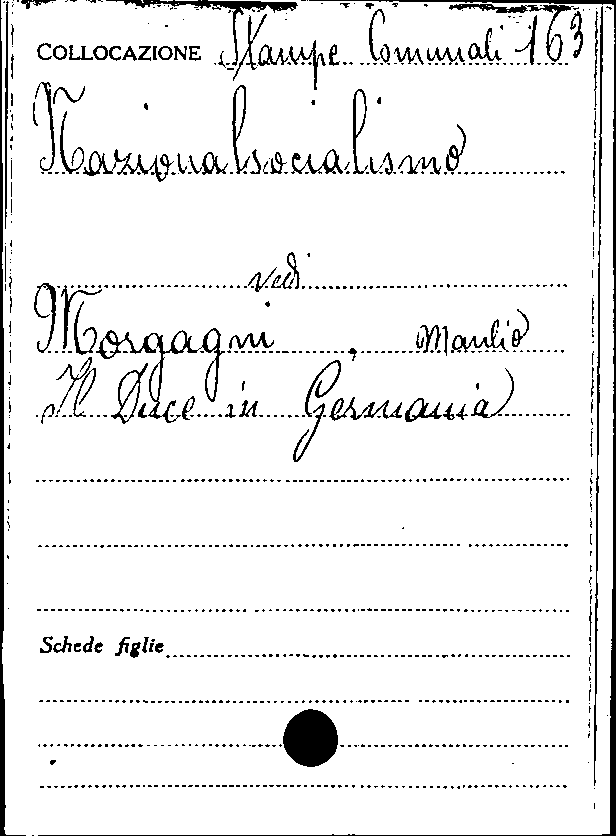 COLLOCAZIONE Stampe Comunali 163
Nazionalsocialismo
vedi
Morgagni, Manlio
Il Duce in Germania
Schede figlie